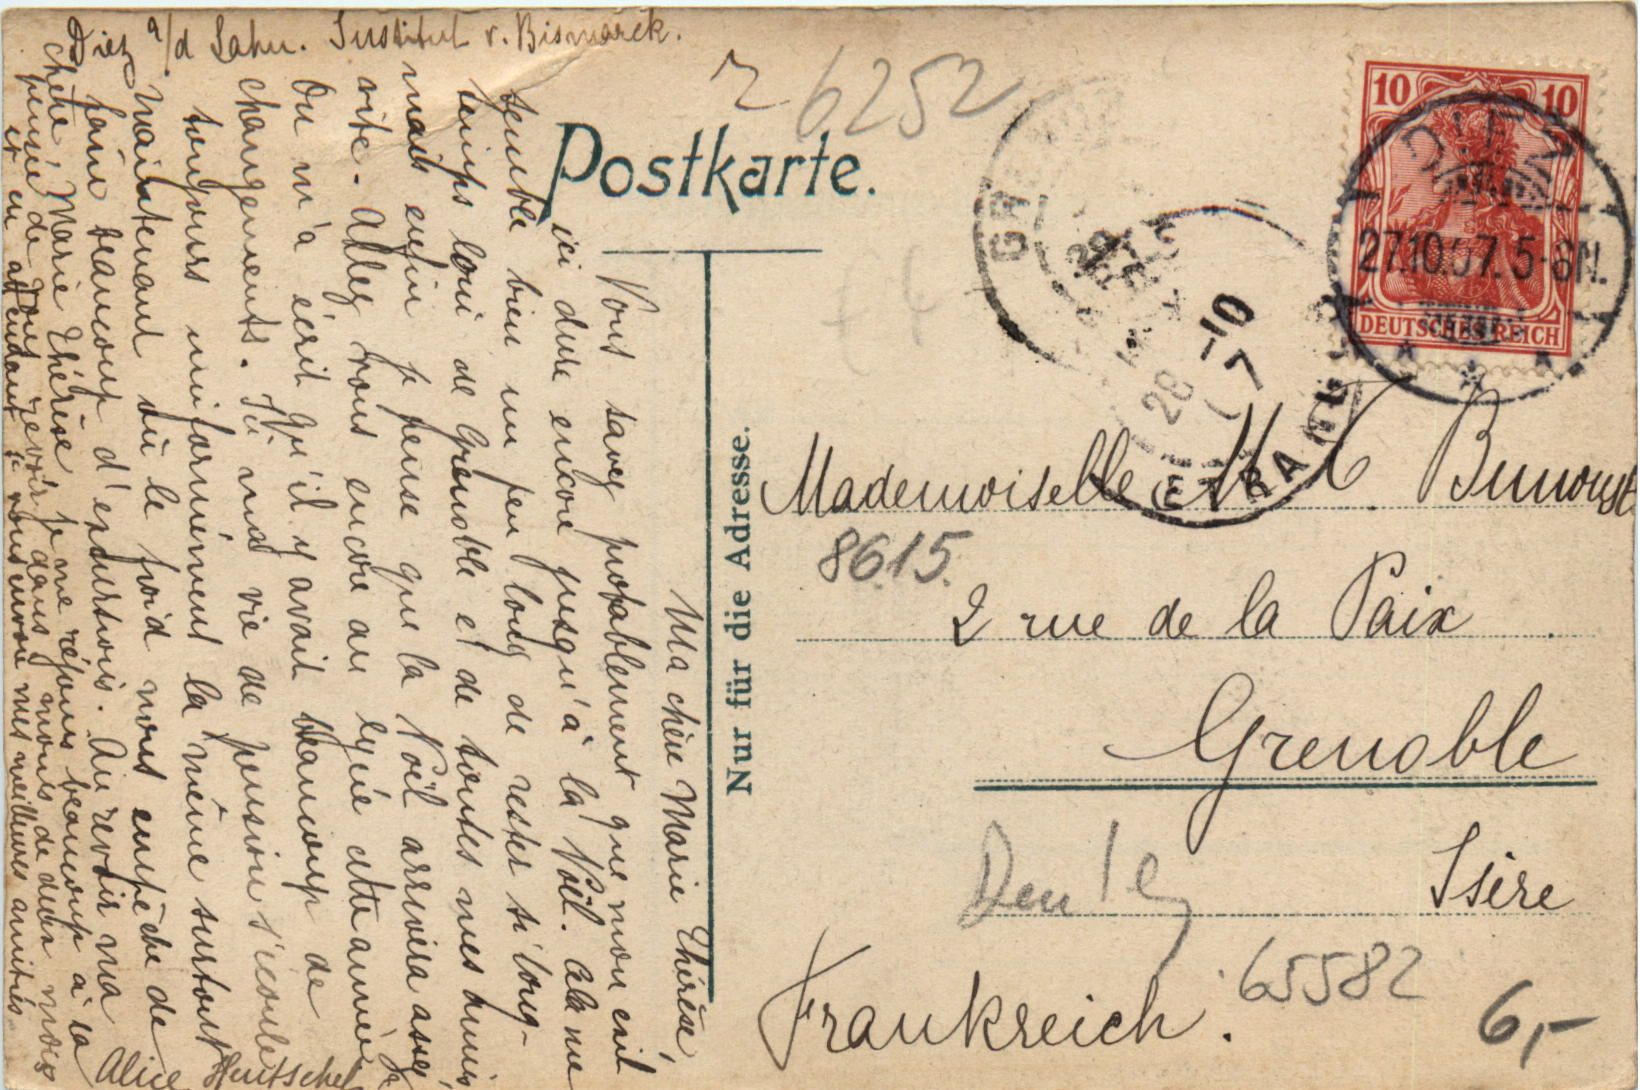 Diez a/d Lahn. Institut v. Bismarck.
Ma chère Marie Thérèse
Vous savez probablement que mon exil
ici dure encore jusqu'à la Noël. Cela me
semble bien un peu long de rester si long-
temps loin de Grenoble et de toutes mes amies
mais enfin je pense que la Noël arrivera assez
vite. Allez vous encore au lycée cette année?
On m'a écrit qu'il y avait beaucoup de
changements. Ici ma vie de pension s'écoule
toujours uniformément la même surtout
maintenant où le froid nous empêche de
faire beaucoup d'excursions. Au revoir ma
chère Marie Thérèse je me réjouis beaucoup à la
pensée de vous revoir dans moins de deux mois
et en attendant je vous envoie mes meilleures amitiés.
Alice Hentschel
Postkarte.
Nur für die Adresse.
6252
10 10
DEUTSCHES REICH
DIEZ
27.10.07. 5-6N.
28 -10
7
ETRANGER
Mademoiselle M
8615.
2 rue de la Paix
Grenoble
Isère
Frankreich.
65582
6,-